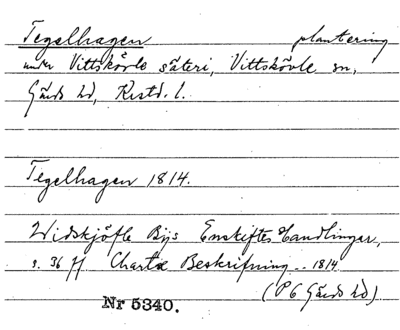 Tegelhagen plantering
under Vittskövle säteri, Vittskövle sn,
Gärds hd, Krstd. l.
Tegelhagen 1814.
Widskjöfle Byis Enskiftes Handlingar,
s. 36 ff Chartæ Beskrifning .. 1814
(P6 Gärds hd)
Nr 5340.